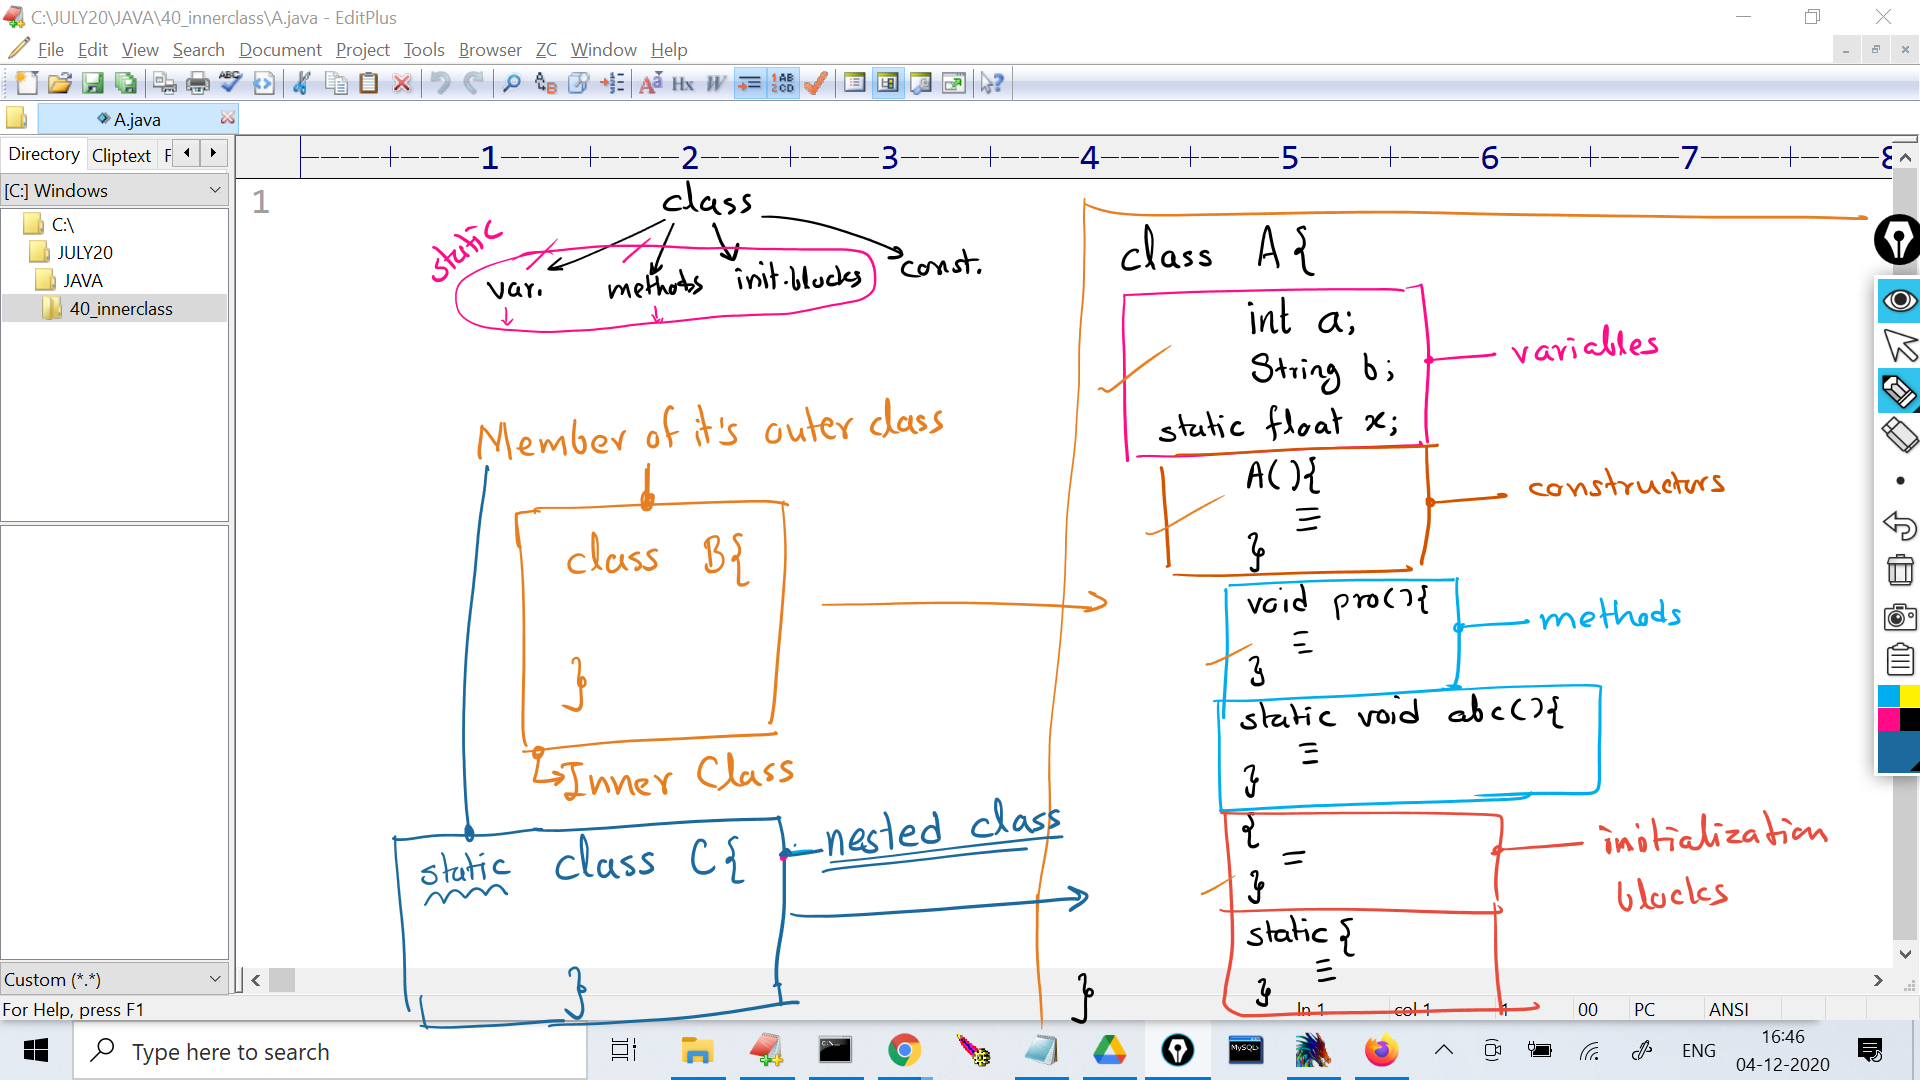 C:\JULY20\JAVA\40_innerclass\A.java - EditPlus
File Edit View Search Document Project Tools Browser ZC Window Help
A.java
Directory Cliptext F
[C:] Windows
C:\
JULY20
JAVA
40_innerclass
1 2 3 4 5 6 7 8
1
class
static
var. methods init.blocks const.
Member of it's outer class
class B{
}
Inner Class
nested class
static class C{
}
class A{
int a;
String b;
static float x;
variables
A(){
}
constructors
void pro(){
}
methods
static void abc(){
}
{
}
initialization
blocks
static {
}
}
Custom (*.*)
For Help, press F1
ln 1 col 1 1 00 PC ANSI
Type here to search
MySQL
ENG
16:46
04-12-2020